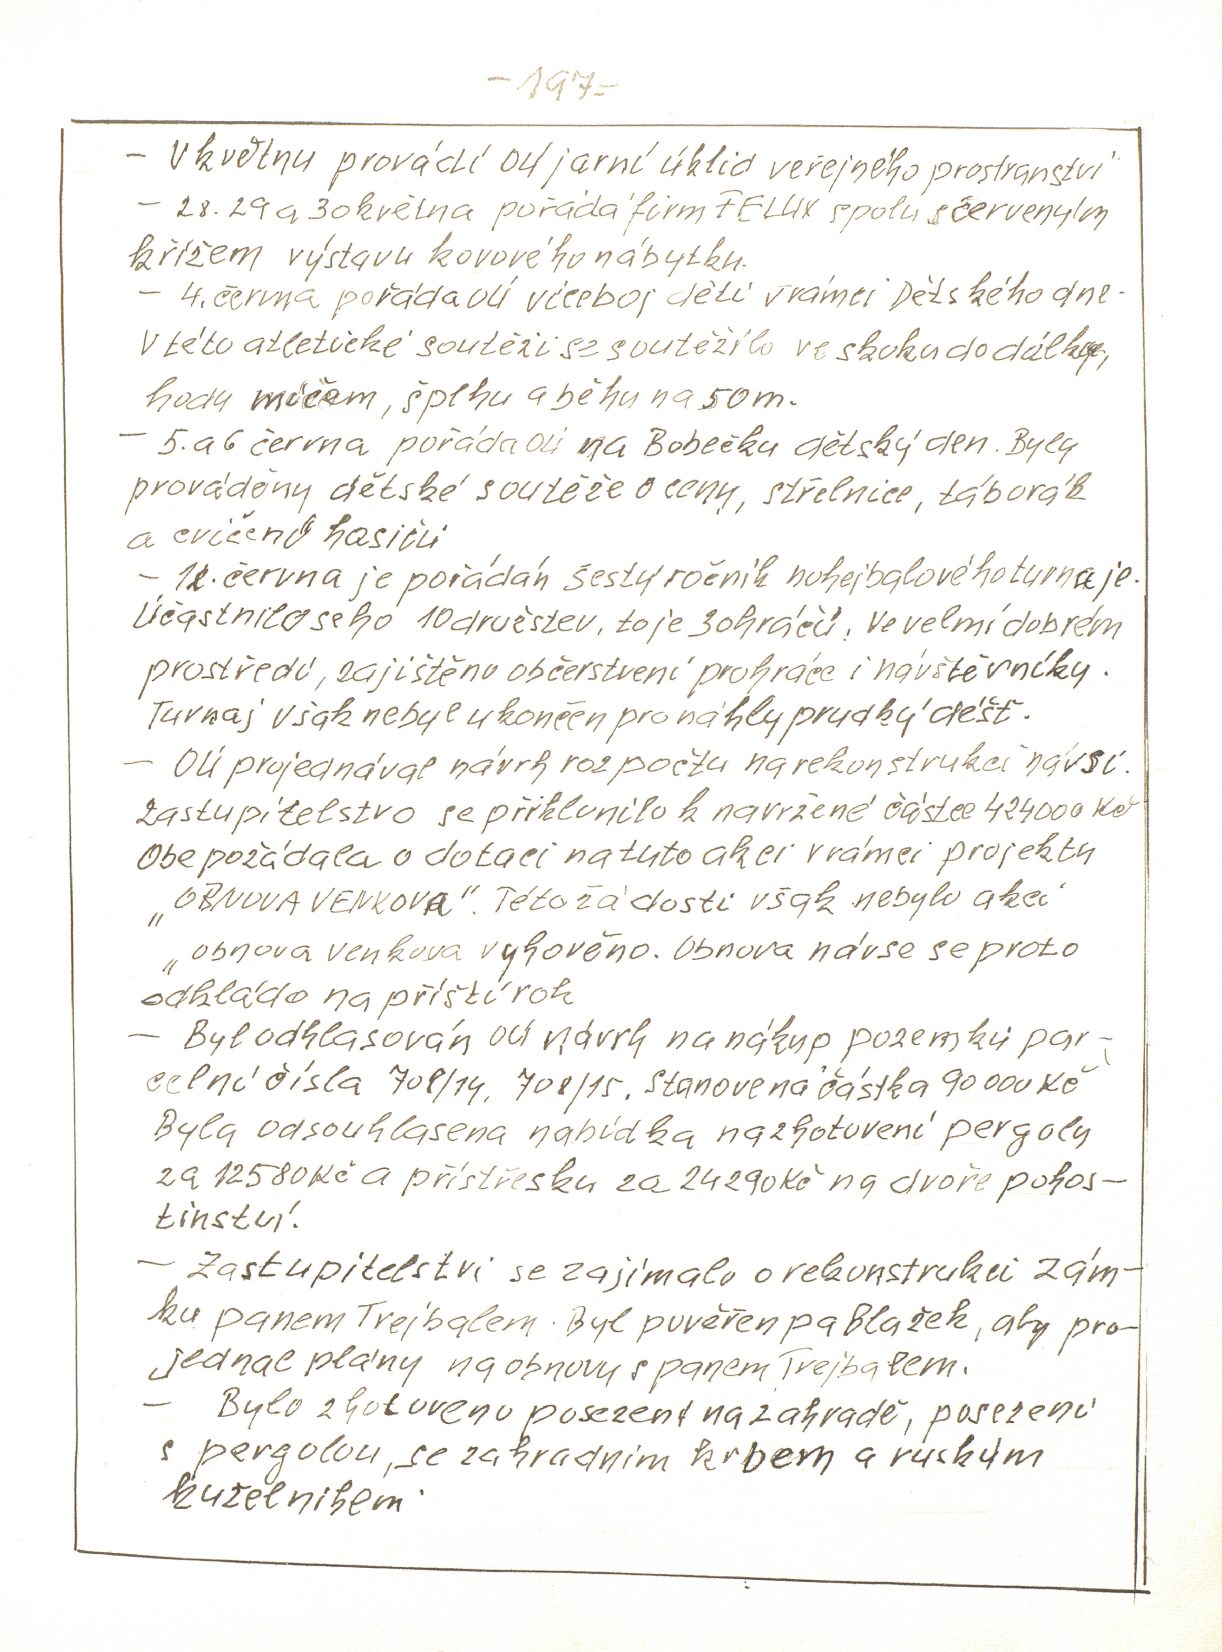 - 197 =
- V květnu provádí OÚ jarní úklid veřejného prostranství
- 28. 29 a 30 května pořádá firm FELUX spolu s červeným
křížem výstavu kovového nábytku.
- 4. června pořáda OÚ víceboj dětí v rámci Dětského dne.
V této atletické soutěži se soutěžilo ve skoku do dálky,
hodu míčem, šplhu a běhu na 50 m.
- 5. a 6 června pořáda OÚ na Bobečku dětský den. Byly
prováděny dětské soutěže o ceny, střelnice, táborák
a cvičení hasičů
- 12. června je pořádán šestý ročník nohejbalového turnaje.
Účastnilo seho 10 družstev, to je 30 hráčů. Ve velmí dobrém
prostředí, zajištěno občerstvení pro hráče i návštěvníky.
Turnaj však nebyl ukončen pro náhlý prudký déšť.
- OÚ projednával návrh rozpočtu na rekonstrukci návsi.
Zastupitelstvo se přiklonilo k navržené částce 424000 Kč
Obe požádala o dotaci na tuto akci v rámci projektu
„OBNOVA VENKOVA". Této žádosti však nebylo akcí
„obnova venkova vyhověno. Obnova návse se proto
odkládo na příští rok
- Byl odhlasován OÚ návrh na nákup pozemků par-
celní čísla 708/14, 708/15. Stanovená částka 90 000 Kč
Byla odsouhlasena nabídka na zhotovení pergoly
za 12580 Kč a přístřesku za 24290 Kč na dvoře pohos-
tinství.
- Zastupitelství se zajímalo o rekonstrukci zám-
ku panem Trejbalem. Byl pověřen pa Blažek, aby pro-
jednal plány na obnovu s panem Trejbalem.
- Bylo zhotoveno posezení na zahradě, posezení
s pergolou, se zahradním krbem a ruským
kuželníkem.